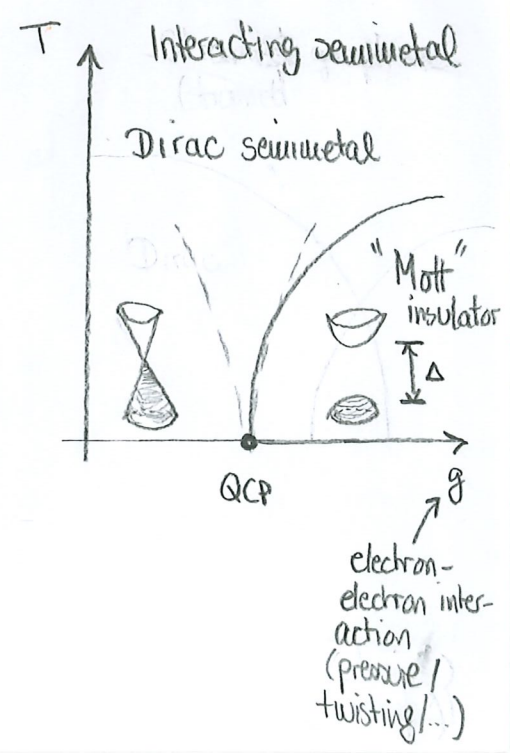 T
Interacting semimetal
Dirac semimetal
"Mott"
insulator
Δ
QCP
g
electron-
electron inter-
action
(pressure/
twisting/...)